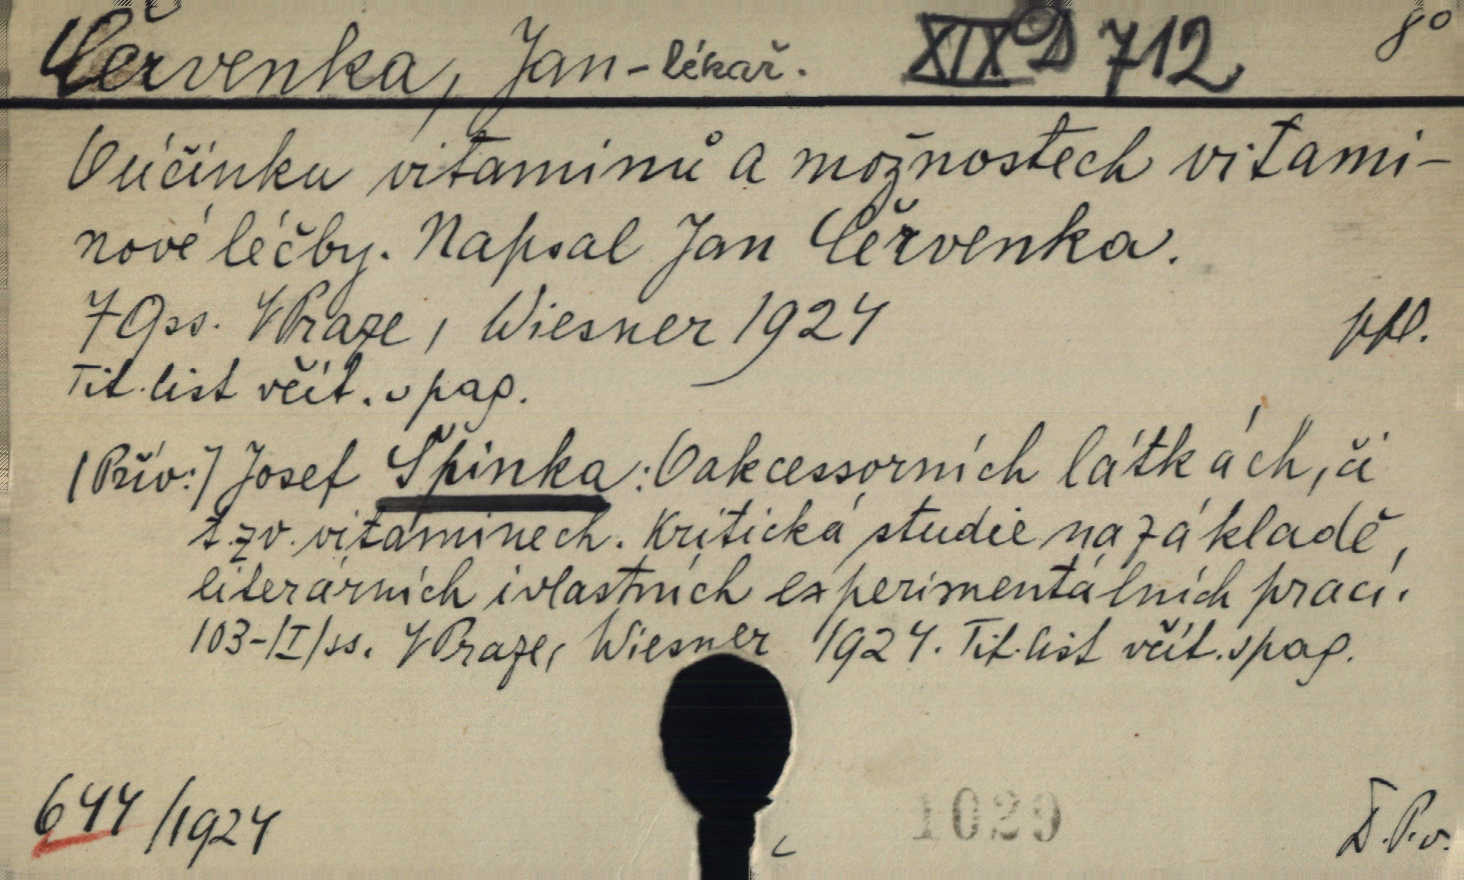 Červenka, Jan-lékař. XIX D 712 8°
O účinku vitaminů a možnostech vitami-
nové léčby. Napsal Jan Červenka.
79ss. V Praze, Wiesner 1924 ppl.
Tit. list včít. v pag.
[Přív:] Josef Špinka: O akcessorních látkách, či
t.zv. vitaminech. Kritická studie na základě
literárních i vlastních experimentálních prací.
103-/I/ss. V Praze, Wiesner 1924. Tit. list včít. v pag.
644/1924 1029 D.P.v.